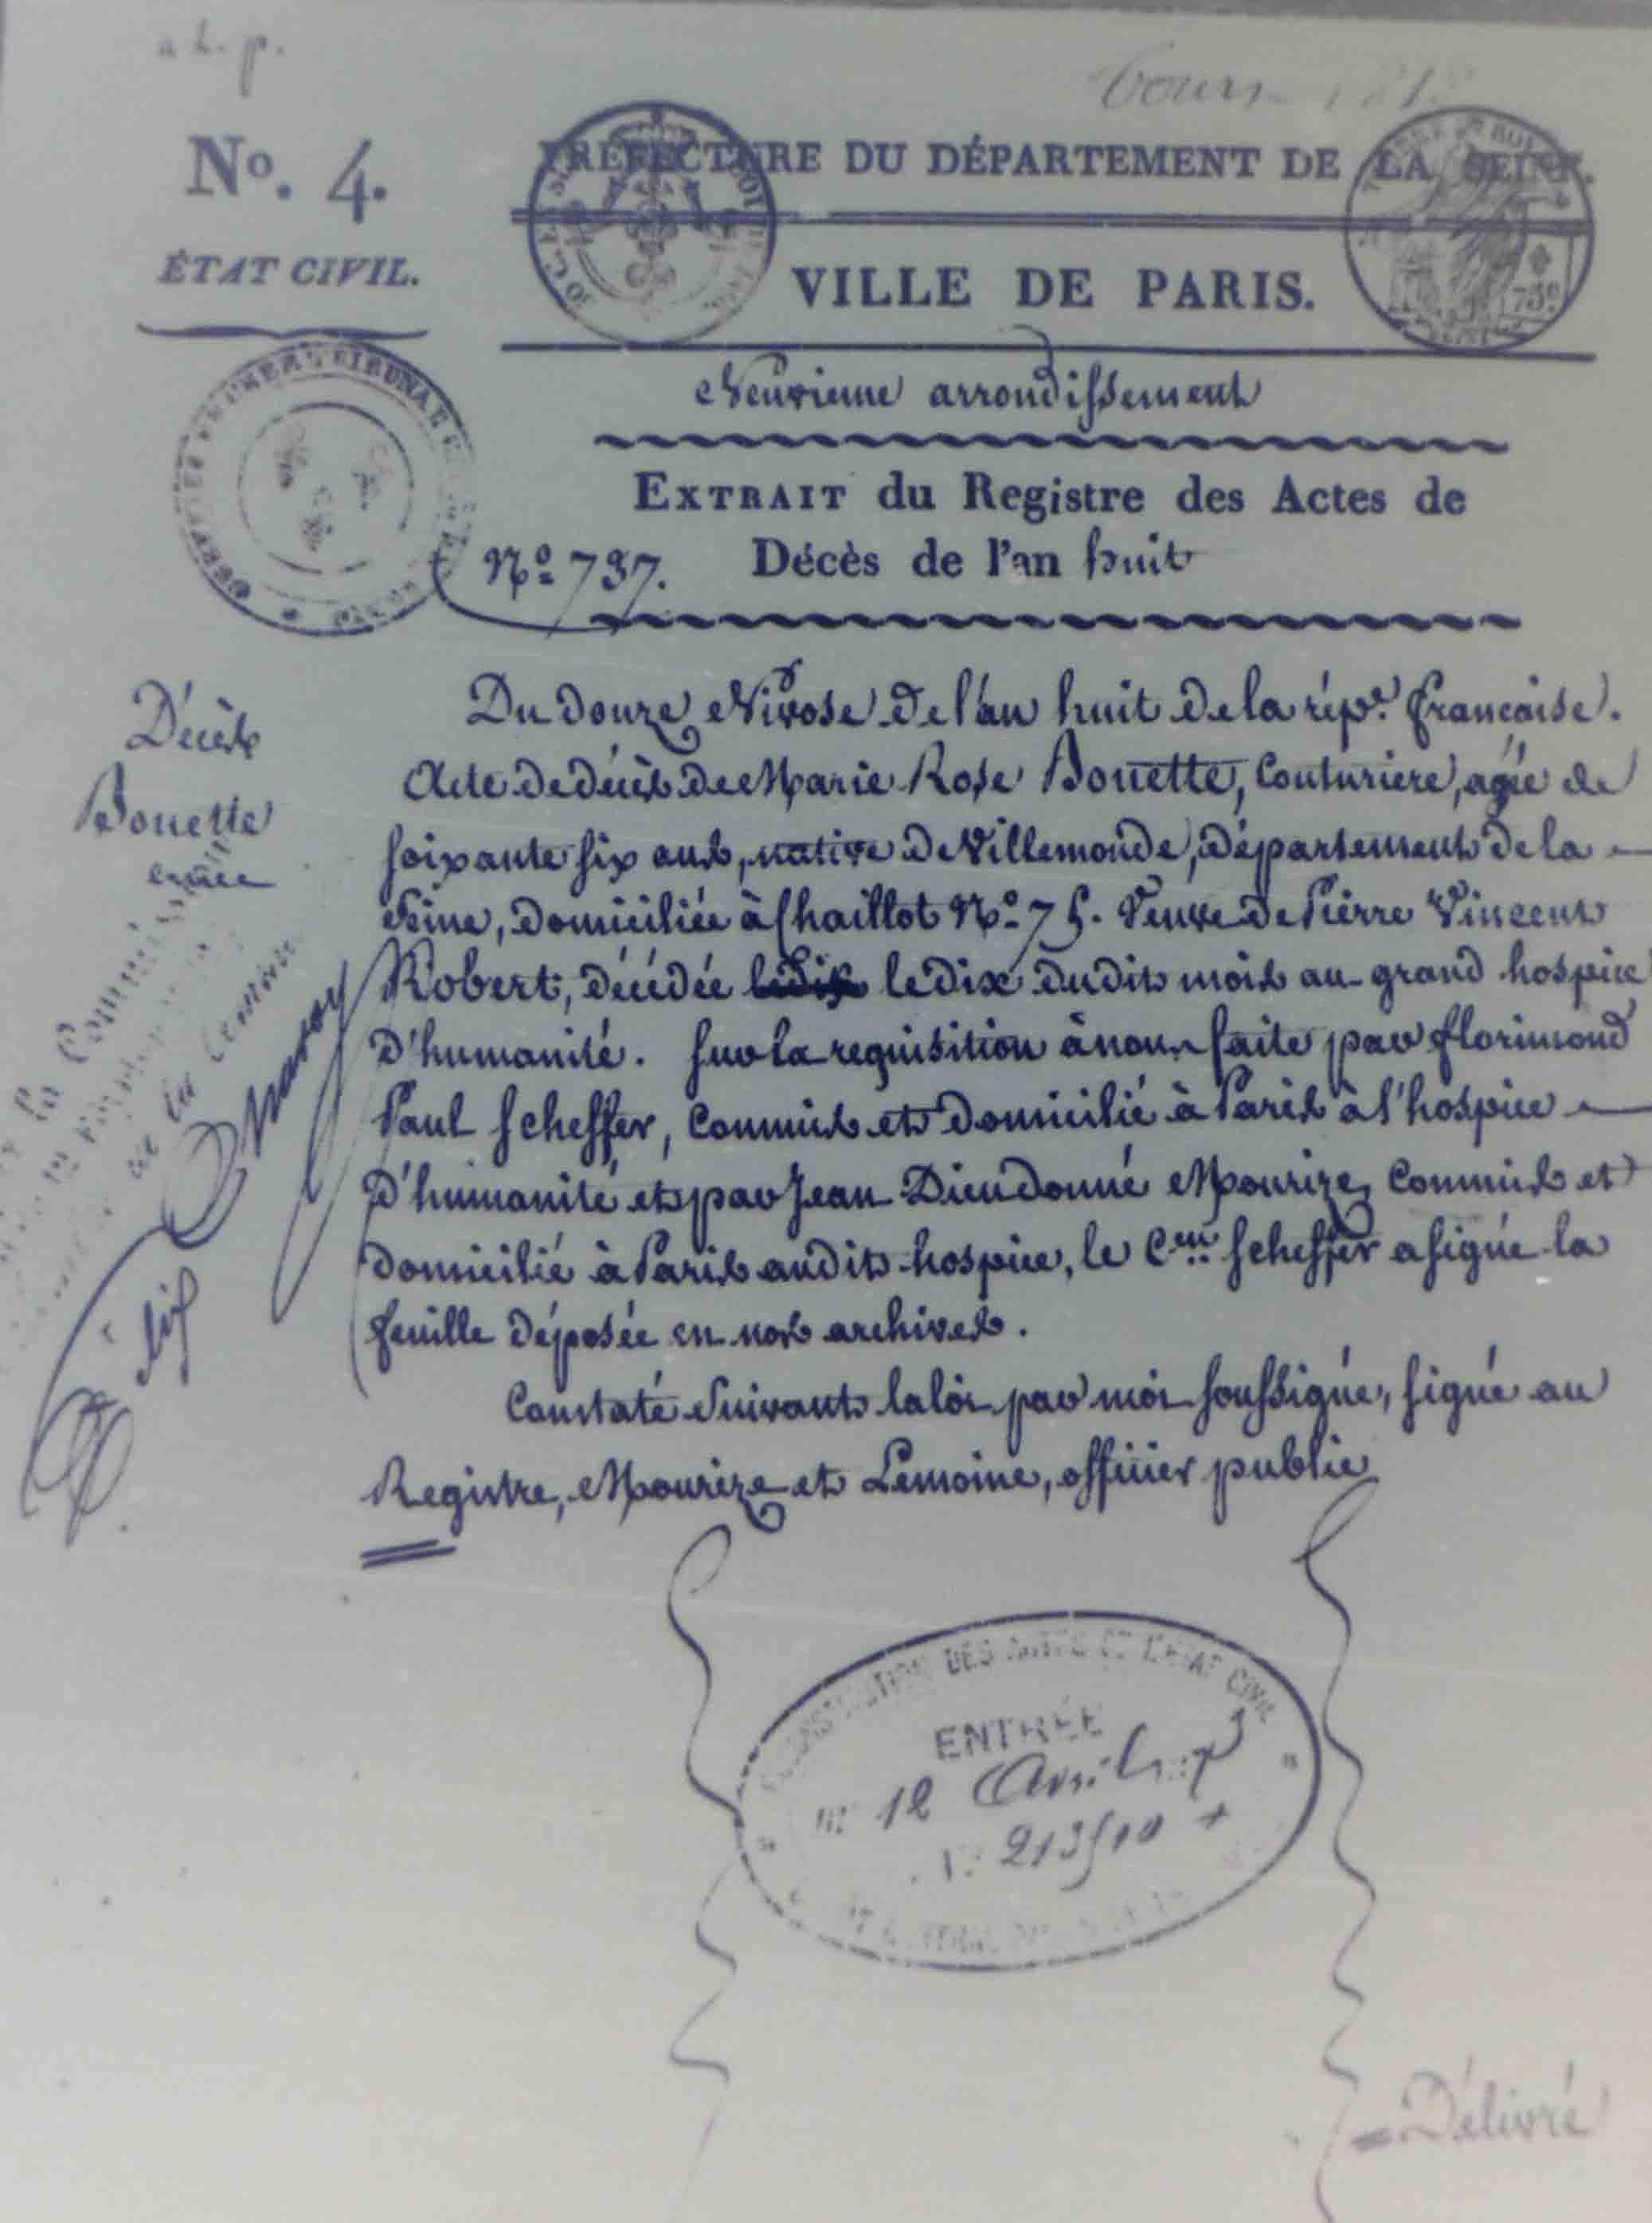 a L. p.
No. 4.
ÉTAT CIVIL.
PRÉFECTURE DU DÉPARTEMENT DE LA SEINE.
VILLE DE PARIS.
75c
Neuvieme arrondissement
EXTRAIT du Registre des Actes de
No 737. Décès de l'an huit
Décès
Bouette
Du douze Nivose de l'an huit de la rép.e française.
Acte de décès de Marie Rose Bouette, Couturiere, agée de
soixante six ans, native de Villemonde, département de la
Seine, domiciliée à Chaillot No 75. Veuve de Pierre Vincent
Robert, décédée ledix le dix dudit mois au grand hospice
d'humanité. Sur la requisition à nous faite par florimond
Paul Scheffer, Commis et domicilié à Paris à l'hospice
d'humanité et par Jean Dieudonné Mourize, Commis et
domicilié à Paris audit hospice, le C.en Scheffer a signé la
feuille déposée en nos archives.
Constaté suivant la loi par moi soussigné, signé au
Registre, Mourize et Lemoine, officier public
DES ACTES DE L'ÉTAT CIVIL
ENTRÉE
12 Avril
Délivré